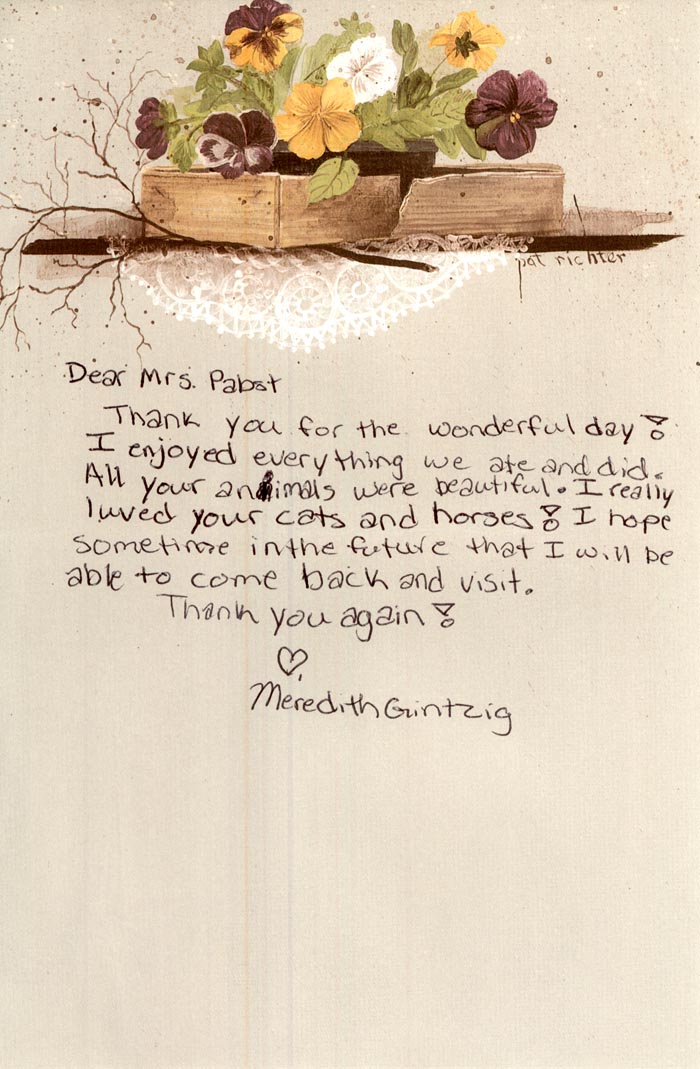 pat richter
Dear Mrs. Pabst
Thank you for the wonderful day!
I enjoyed everything we ate and did.
All your animals were beautiful. I really
luved your cats and horses! I hope
sometime in the future that I will be
able to come back and visit.
Thank you again!
♡,
Meredith Guntzig